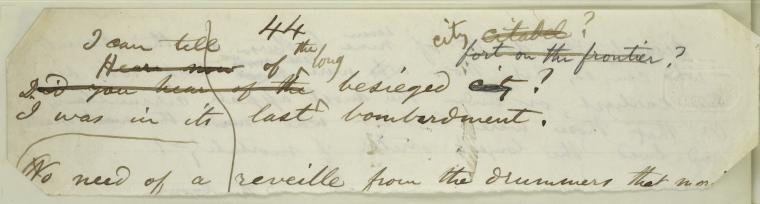 44
city citadel?
I can tell the long
Hear now of fort on the frontier?
Did you hear of the besieged city?
I was in its last bombardment.
No need of a reveille from the drummers that